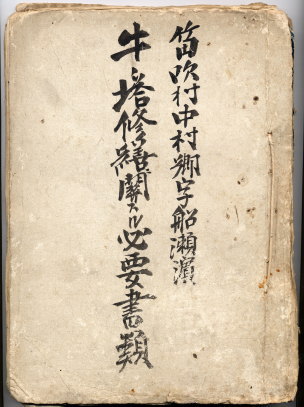 笛吹村中村郷字船瀬濵
牛ノ塔修繕関スル必要書類